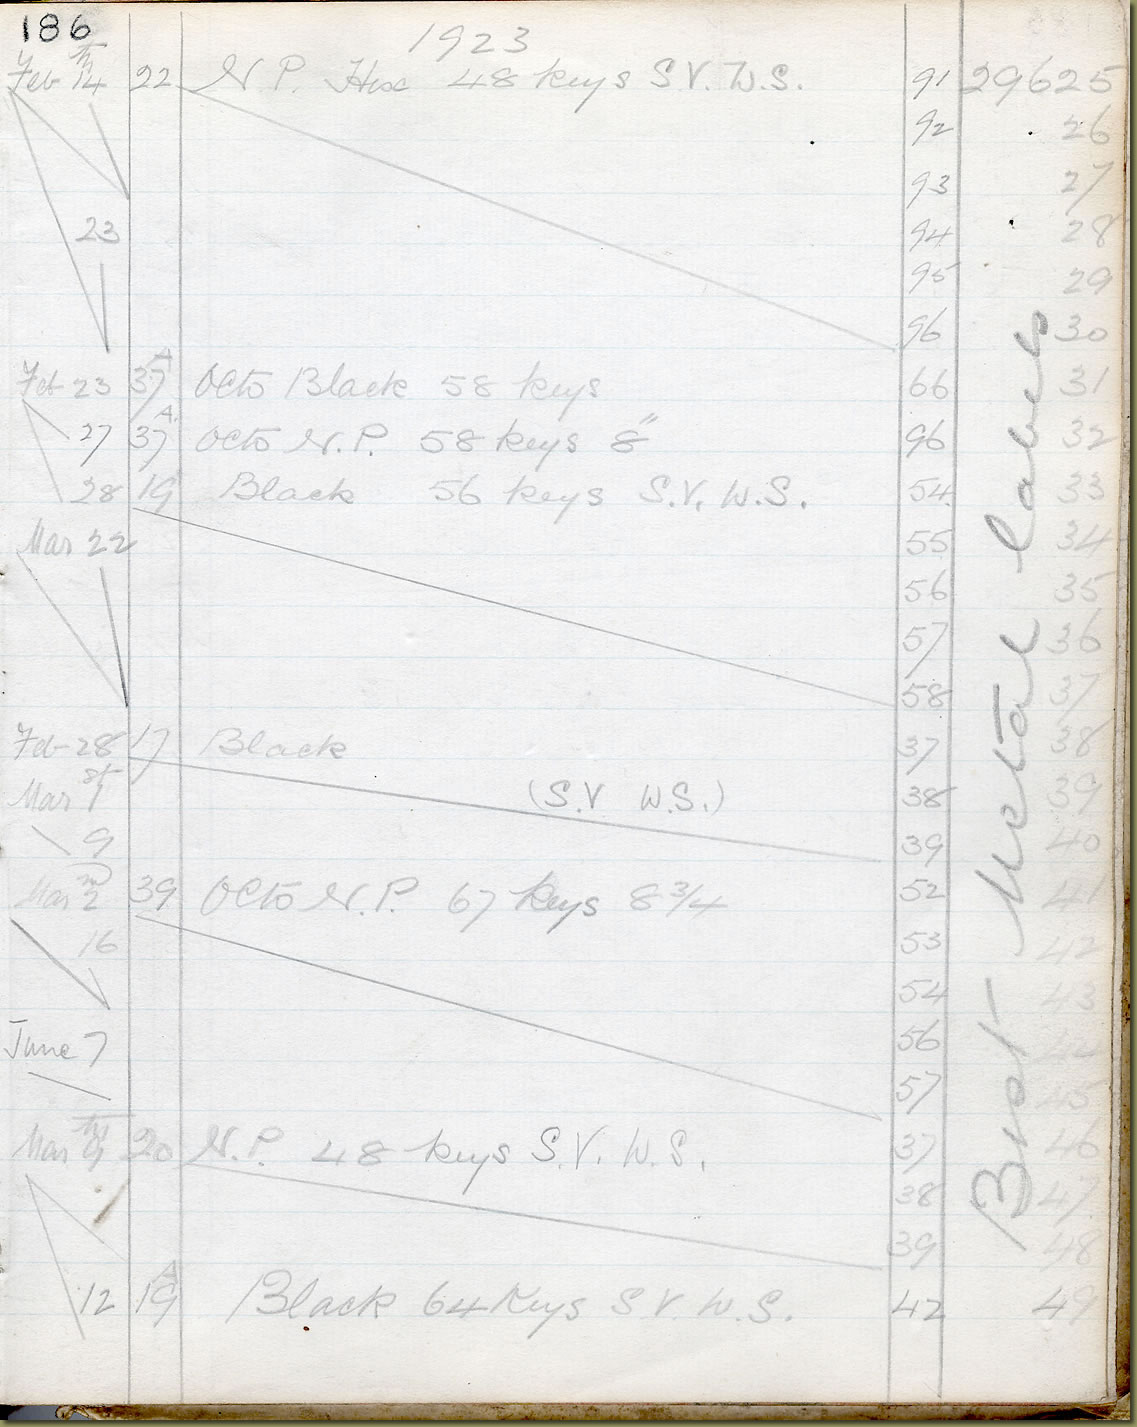 186
1923
Feb 14th 22 N.P. Hex 48 keys S.V. W.S. 91 29625
92 26
93 27
23 94 28
95 29
96 30
Feb 23 37A Octo Black 58 keys 66 31
27 37A. Octo N.P. 58 keys 8" 96 32
28 19 Black 56 keys S.V. W.S. 54 33
Mar 22 55 34
56 35
57 36
58 37
Feb 28 17 Black 37 38
Mar 1st (S.V W.S.) 38 39
9 39 40
Mar 2nd 39 Octo N.P. 67 keys 8 3/4 52 41
16 53 42
54 43
June 7 56
57 45
Mar 20 N.P. 48 keys S.V. W.S. 37 46
38 47
39 48
12 19A Black 64 Keys S V. W.S. 42 49
Metal Labels